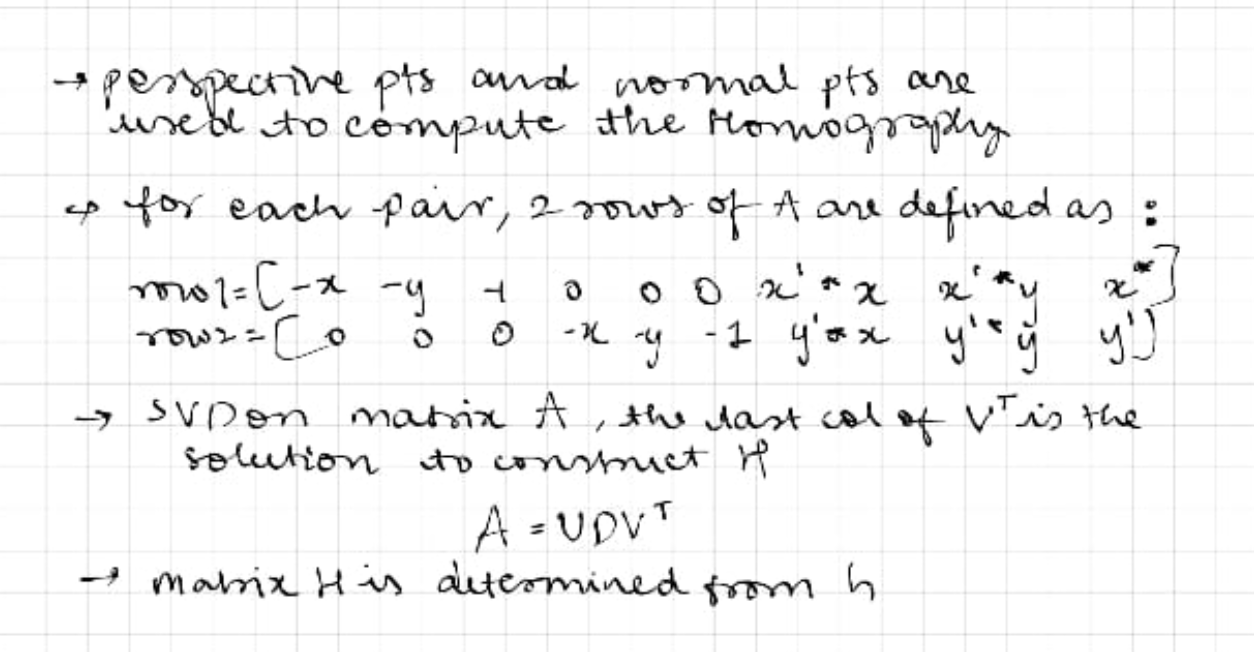 → perspective pts and normal pts are
used to compute the Homography
→ for each pair, 2 rows of A are defined as :
row1=[-x -y -1 0 0 0 x'*x x'*y x'*]
row2=[0 0 0 -x -y -1 y'*x y'*y y']
→ SVD on matrix A, the last col of Vᵀ is the
solution to construct H
A = UDVᵀ
→ matrix H is determined from h